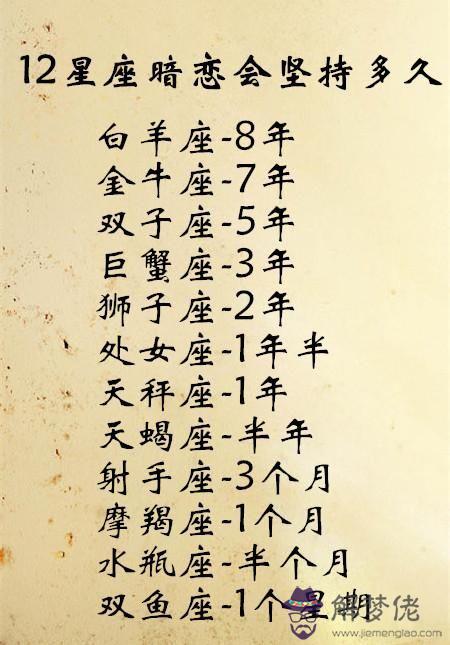 12星座暗恋会坚持多久
白羊座-8年
金牛座-7年
双子座-5年
巨蟹座-3年
狮子座-2年
处女座-1年半
天秤座-1年
天蝎座-半年
射手座-3个月
摩羯座-1个月
水瓶座-半个月
双鱼座-1个星期
解梦佬
www.jiemenglao.com